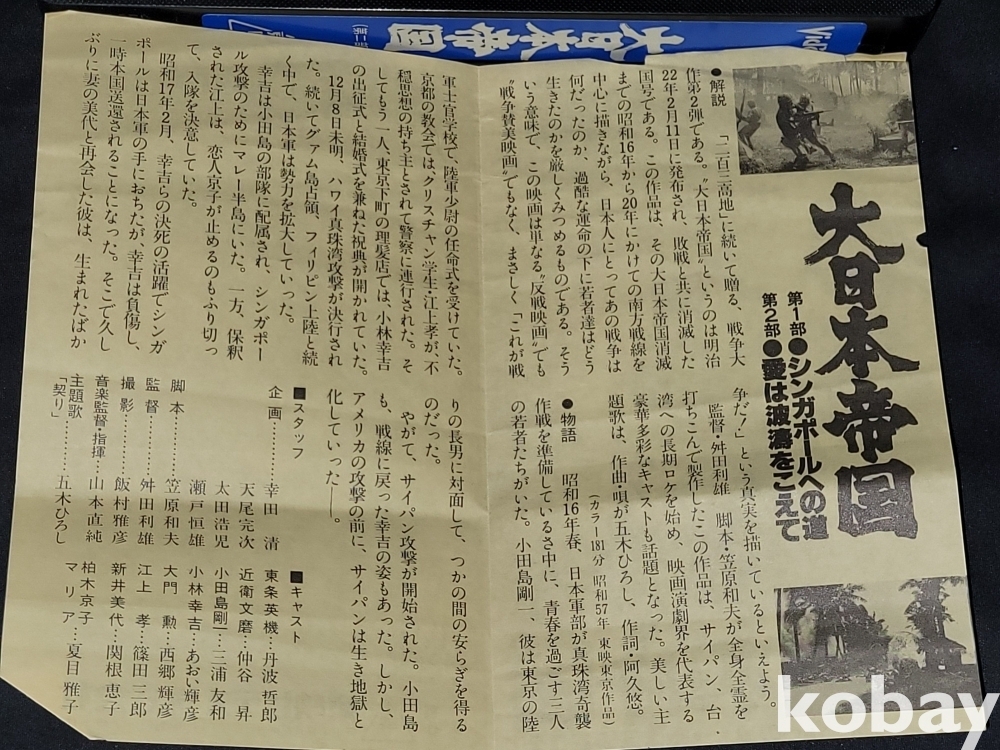 Vid
大日本帝国
(第二部
大日本帝国
第1部●シンガポールへの道
第2部●愛は波濤をこえて
●解説　「二百三高地」に続いて贈る、戦争大
作第2弾である。“大日本帝国”というのは明治
22年2月11日に発布され、敗戦と共に消滅した
国号である。この作品は、その大日本帝国消滅
までの昭和16年から20年にかけての南方戦線を
中心に描きながら、日本人にとってあの戦争は
何だったのか、過酷な運命の下に若者達はどう
生きたのかを厳しくみつめるものである。そう
いう意味で、この映画は単なる“反戦映画”でも
“戦争賛美映画”でもなく、まさしく「これが戦
争だ!」という真実を描いているといえよう。
監督・舛田利雄　脚本・笠原和夫が全身全霊を
打ちこんで製作したこの作品は、サイパン、台
湾への長期ロケを始め、映画演劇界を代表する
豪華多彩なキャストも話題となった。美しい主
題歌は、作曲・唄が五木ひろし、作詞・阿久悠。
(カラー181分 昭和57年 東映東京作品)
●物語　昭和16年春、日本軍部が真珠湾奇襲
作戦を準備しているさ中に、青春を過ごす三人
の若者たちがいた。小田島剛一、彼は東京の陸
軍士官学校で、陸軍少尉の任命式を受けていた。
京都の教会ではクリスチャン学生・江上孝が、不
穏思想の持ち主とされて警察に連行された。そ
してもう一人、東京下町の理髪店では、小林幸吉
の出征式と結婚式を兼ねた祝典が開かれていた。
12月8日未明、ハワイ真珠湾攻撃が決行され
た。続いてグァム島占領、フィリピン上陸と続
く中で、日本軍は勢力を拡大していった。
幸吉は小田島の部隊に配属され、シンガポー
ル攻撃のためにマレー半島にいた。一方、保釈
された江上は、恋人京子が止めるのもふり切っ
て、入隊を決意していた。
昭和17年2月、幸吉らの決死の活躍でシンガ
ポールは日本軍の手におちたが、幸吉は負傷し、
一時本国送還されることになった。そこで久し
ぶりに妻の美代と再会した彼は、生まれたばか
りの長男に対面して、つかの間の安らぎを得る
のだった。
やがて、サイパン攻撃が開始された。小田島
も、戦線に戻った幸吉の姿もあった。しかし、
アメリカの攻撃の前に、サイパンは生き地獄と
化していった——。
■スタッフ
企画………幸田　清
天尾完次
太田浩児
瀬戸恒雄
脚本………笠原和夫
監督………舛田利雄
撮影………飯村雅彦
音楽監督・指揮…山本直純
主題歌………五木ひろし
「契り」
■キャスト
東条英機…丹波哲郎
近衛文磨…仲谷　昇
小田島剛一…三浦友和
小林幸吉…あおい輝彦
大門　勲…西郷輝彦
江上　孝…篠田三郎
新井美代…関根恵子
柏木京子
マリア…夏目雅子
kobay